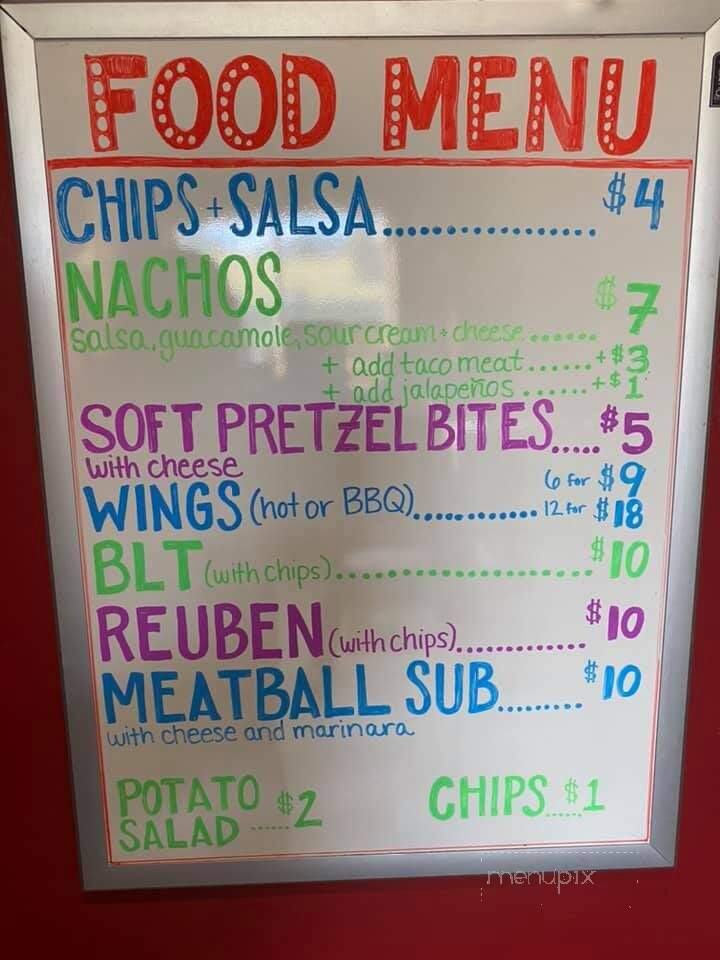 FOOD MENU
CHIPS + SALSA.................. $4
NACHOS
$7
salsa, guacamole, sour cream + cheese......
+ add taco meat...... +$3
+ add jalapeños...... +$1
SOFT PRETZEL BITES..... $5
with cheese
WINGS (hot or BBQ)............ 6 for $9
12 for $18
BLT (with chips)...................... $10
REUBEN (with chips)............. $10
MEATBALL SUB........ $10
with cheese and marinara
POTATO
SALAD ..... $2
CHIPS ..... $1
menupix